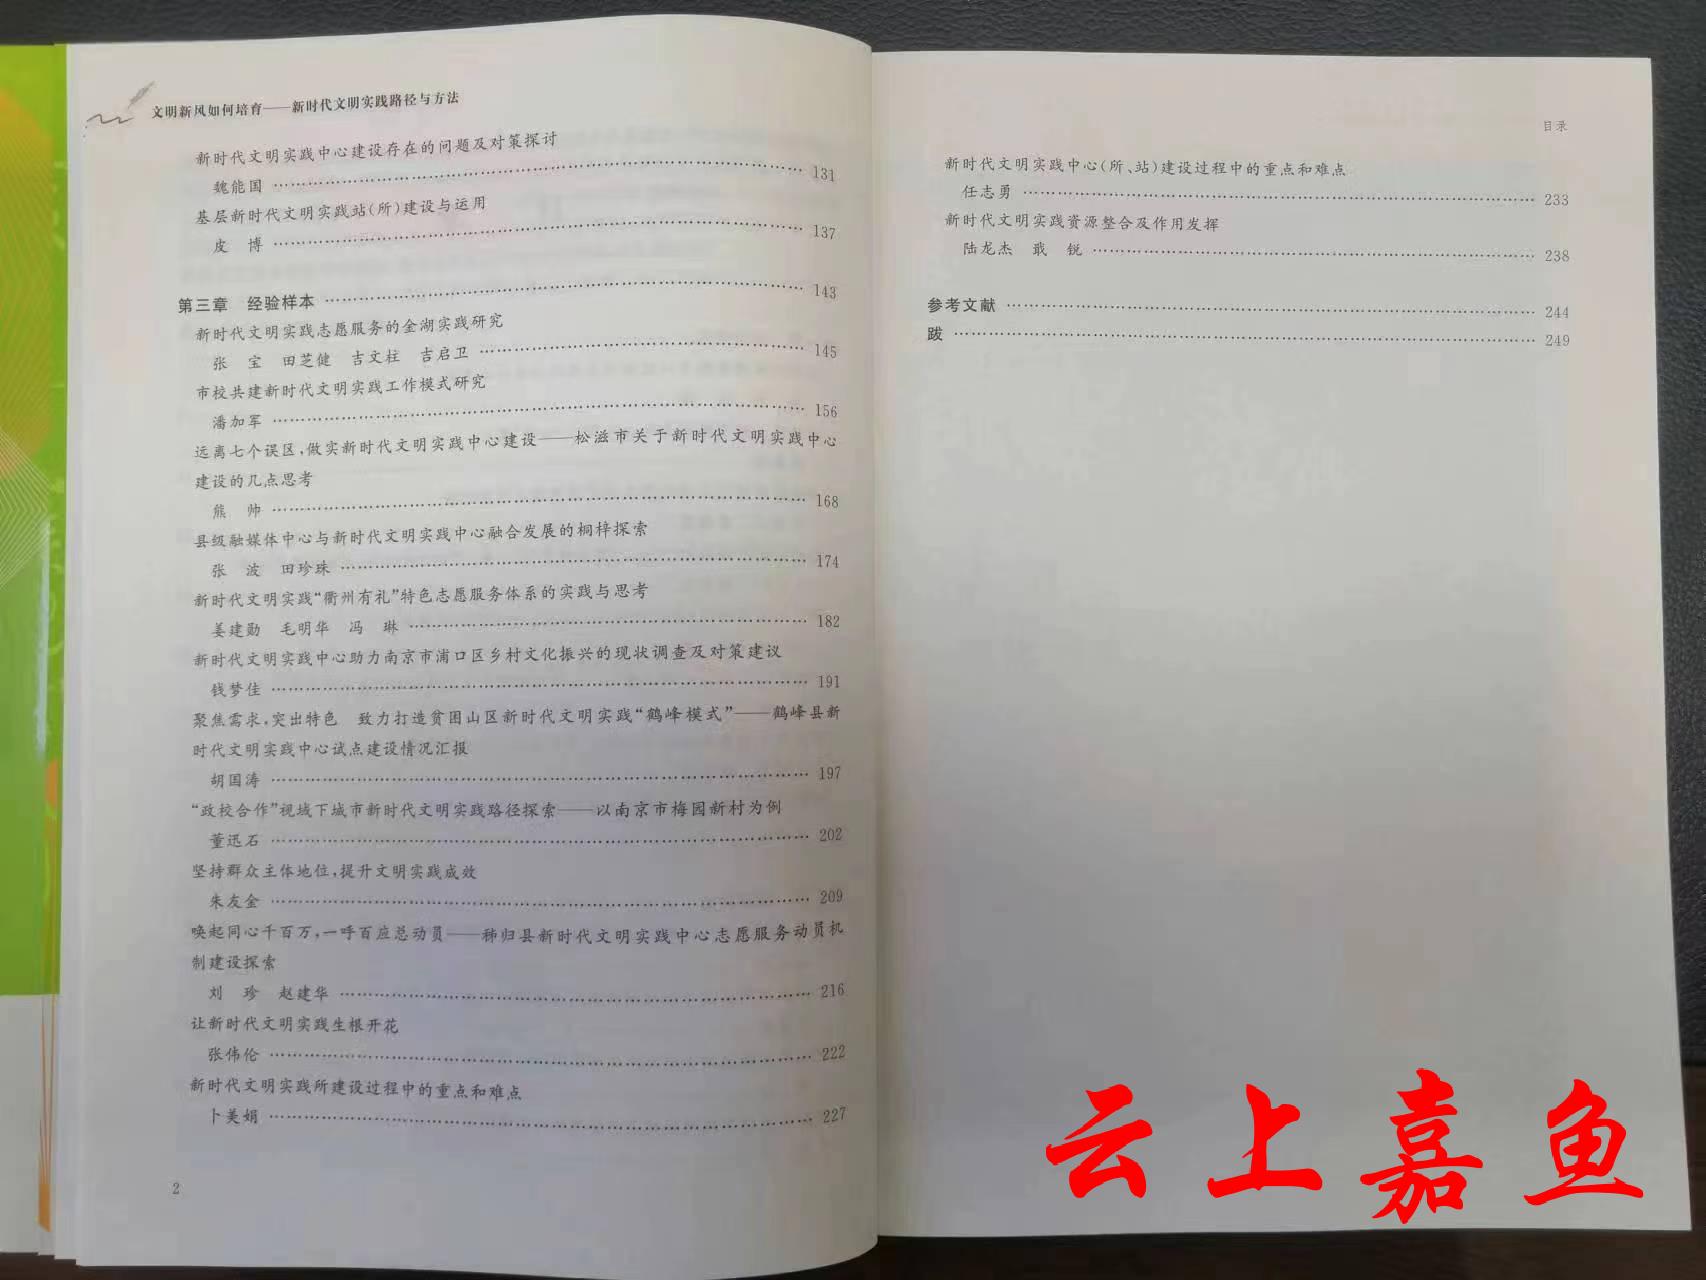 文明新风如何培育——新时代文明实践路径与方法
新时代文明实践中心建设存在的问题及对策探讨
魏能国 …… 131
基层新时代文明实践站(所)建设与运用
皮　博 …… 137
第三章　经验样本 …… 143
新时代文明实践志愿服务的金湖实践研究
张　宝　田芝健　吉文柱　吉启卫 …… 145
市校共建新时代文明实践工作模式研究
潘加军 …… 156
远离七个误区,做实新时代文明实践中心建设——松滋市关于新时代文明实践中心
建设的几点思考
熊　帅 …… 168
县级融媒体中心与新时代文明实践中心融合发展的桐梓探索
张　波　田珍珠 …… 174
新时代文明实践“衢州有礼”特色志愿服务体系的实践与思考
姜建勋　毛明华　冯　琳 …… 182
新时代文明实践中心助力南京市浦口区乡村文化振兴的现状调查及对策建议
钱梦佳 …… 191
聚焦需求,突出特色　致力打造贫困山区新时代文明实践“鹤峰模式”——鹤峰县新
时代文明实践中心试点建设情况汇报
胡国涛 …… 197
“政校合作”视域下城市新时代文明实践路径探索——以南京市梅园新村为例
董迅石 …… 202
坚持群众主体地位,提升文明实践成效
朱友金 …… 209
唤起同心千百万,一呼百应总动员——秭归县新时代文明实践中心志愿服务动员机
制建设探索
刘　珍　赵建华 …… 216
让新时代文明实践生根开花
张伟伦 …… 222
新时代文明实践所建设过程中的重点和难点
卜美娟 …… 227
2
目录
新时代文明实践中心(所、站)建设过程中的重点和难点
任志勇 …… 233
新时代文明实践资源整合及作用发挥
陆龙杰　戢　锐 …… 238
参考文献 …… 244
跋 …… 249
云上嘉鱼